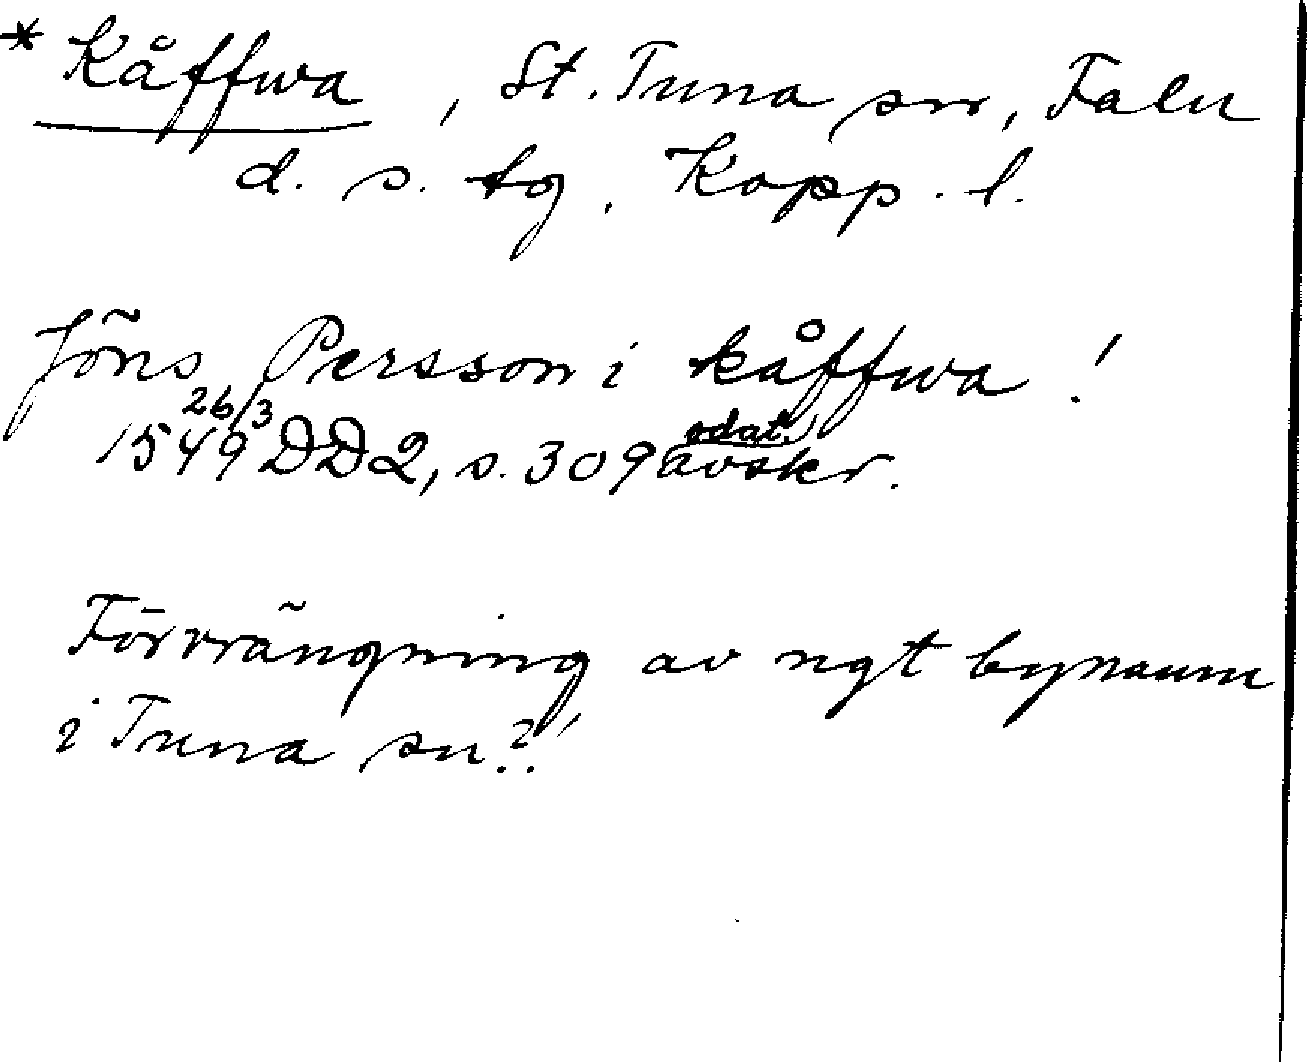 * Kåffwa, St. Tuna sn, Falu
d. s. tg. Kopp. l.
Jöns Persson i kåffwa!
26/3
1549 DD2, s. 309 odat. avskr.
Förvrängning av ngt bynamn
i Tuna sn?!